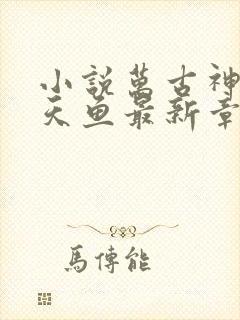 小說萬古神
天魚最新章
馬傳能